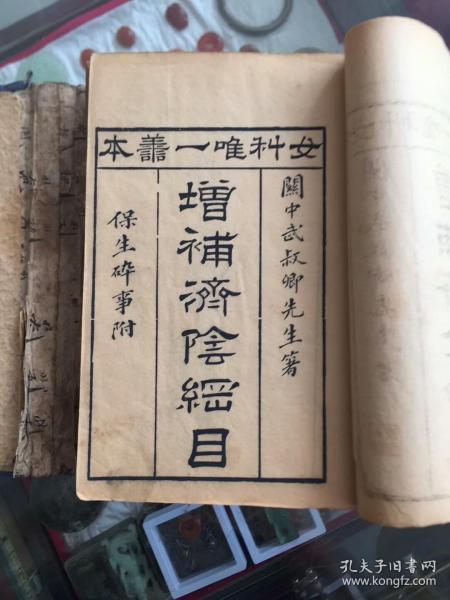 女科唯一善本
關中武叔卿先生著
增補濟陰綱目
保生碎事附
孔夫子旧书网
www.kongfz.com